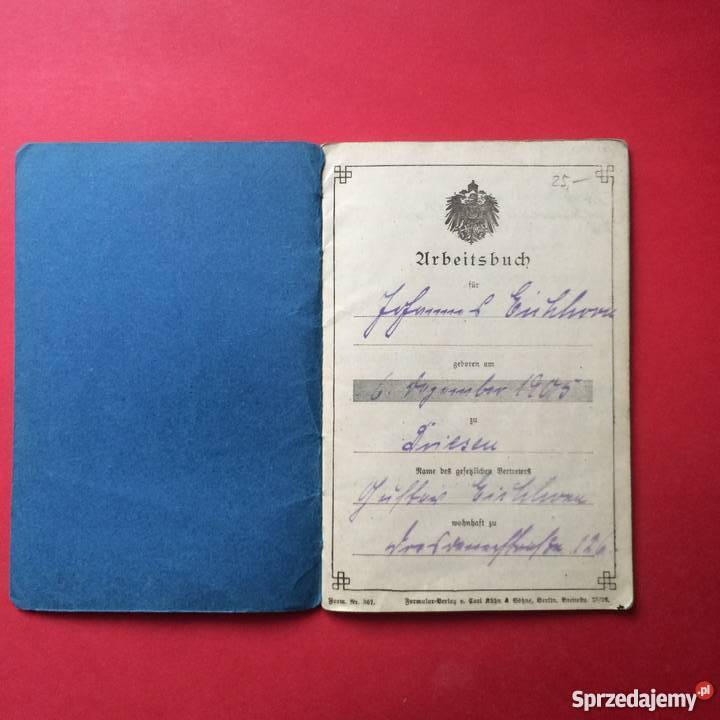 25,—
Arbeitsbuch
für
Johannes Eichhorn
geboren am
6. Dezember 1905
zu
Driesen
Name des gesetzlichen Vertreters
Gustav Eichhorn
wohnhaft zu
Dresdenerstraße 126
Form. Nr. 361. Formular-Verlag v. Carl Kühn & Söhne, Berlin, Breitestr. 25/26.
Sprzedajemy.pl